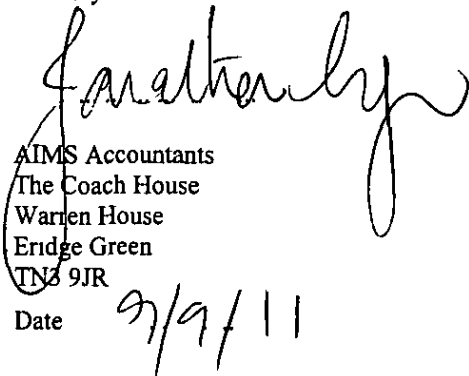 Jonathan
AIMS Accountants
The Coach House
Warren House
Eridge Green
TN3 9JR
Date 9/9/11